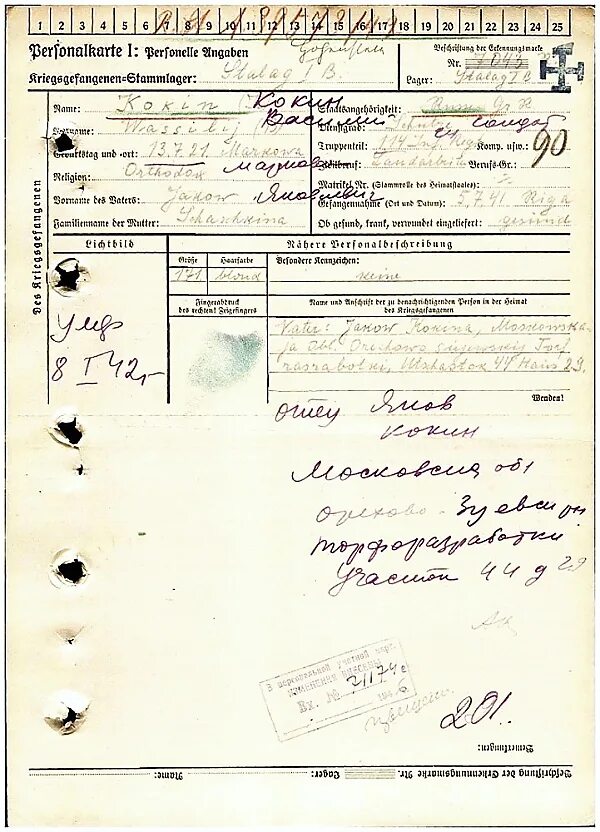 1 2 3 4 5 6 7 8 9 10 11 12 13 14 15 16 17 18 19 20 21 22 23 24 25
Personalkarte I: Personelle Angaben
Kriegsgefangenen-Stammlager: Stalag I B.
Beschriftung der Erkennungsmarke
Nr. 7043
Lager: Stalag I C
Des Kriegsgefangenen
Name: Kokin Кокин
Vorname: Wassilij Василий
Geburtstag und -ort: 13.7.21 Markowa
Religion: Orthodox
Vorname des Vaters: Jakow Яковлевич
Familienname der Mutter: Schaschkina
Staatsangehörigkeit:
Dienstgrad: солдат
Truppenteil: Komp. usw.: 90
Zivilberuf: Landarbeiter Berufs-Gr.:
Matrikel Nr. (Stammrolle des Heimatstaates):
Gefangennahme (Ort und Datum): 5.7.41 Riga
Ob gesund, krank, verwundet eingeliefert: gesund
Lichtbild
Nähere Personalbeschreibung
Größe Haarfarbe Besondere Kennzeichen:
171 blond keine
Fingerabdruck
des rechten! Zeigefingers
Name und Anschrift der zu benachrichtigenden Person in der Heimat
des Kriegsgefangenen
Vater: Jakow Kokina, Moskowska-
ja Obl. Orechowo Torf
44 Haus 29.
Wenden!
Умер
8 I 42
отец Яков
Кокин
Московская обл
Орехово-Зуевский рн
торфоразработки
Участок 44 д 29
Вх. №
201.
Bemerkungen:
Beschriftung der Erkennungsmarke Nr. Lager: Name: